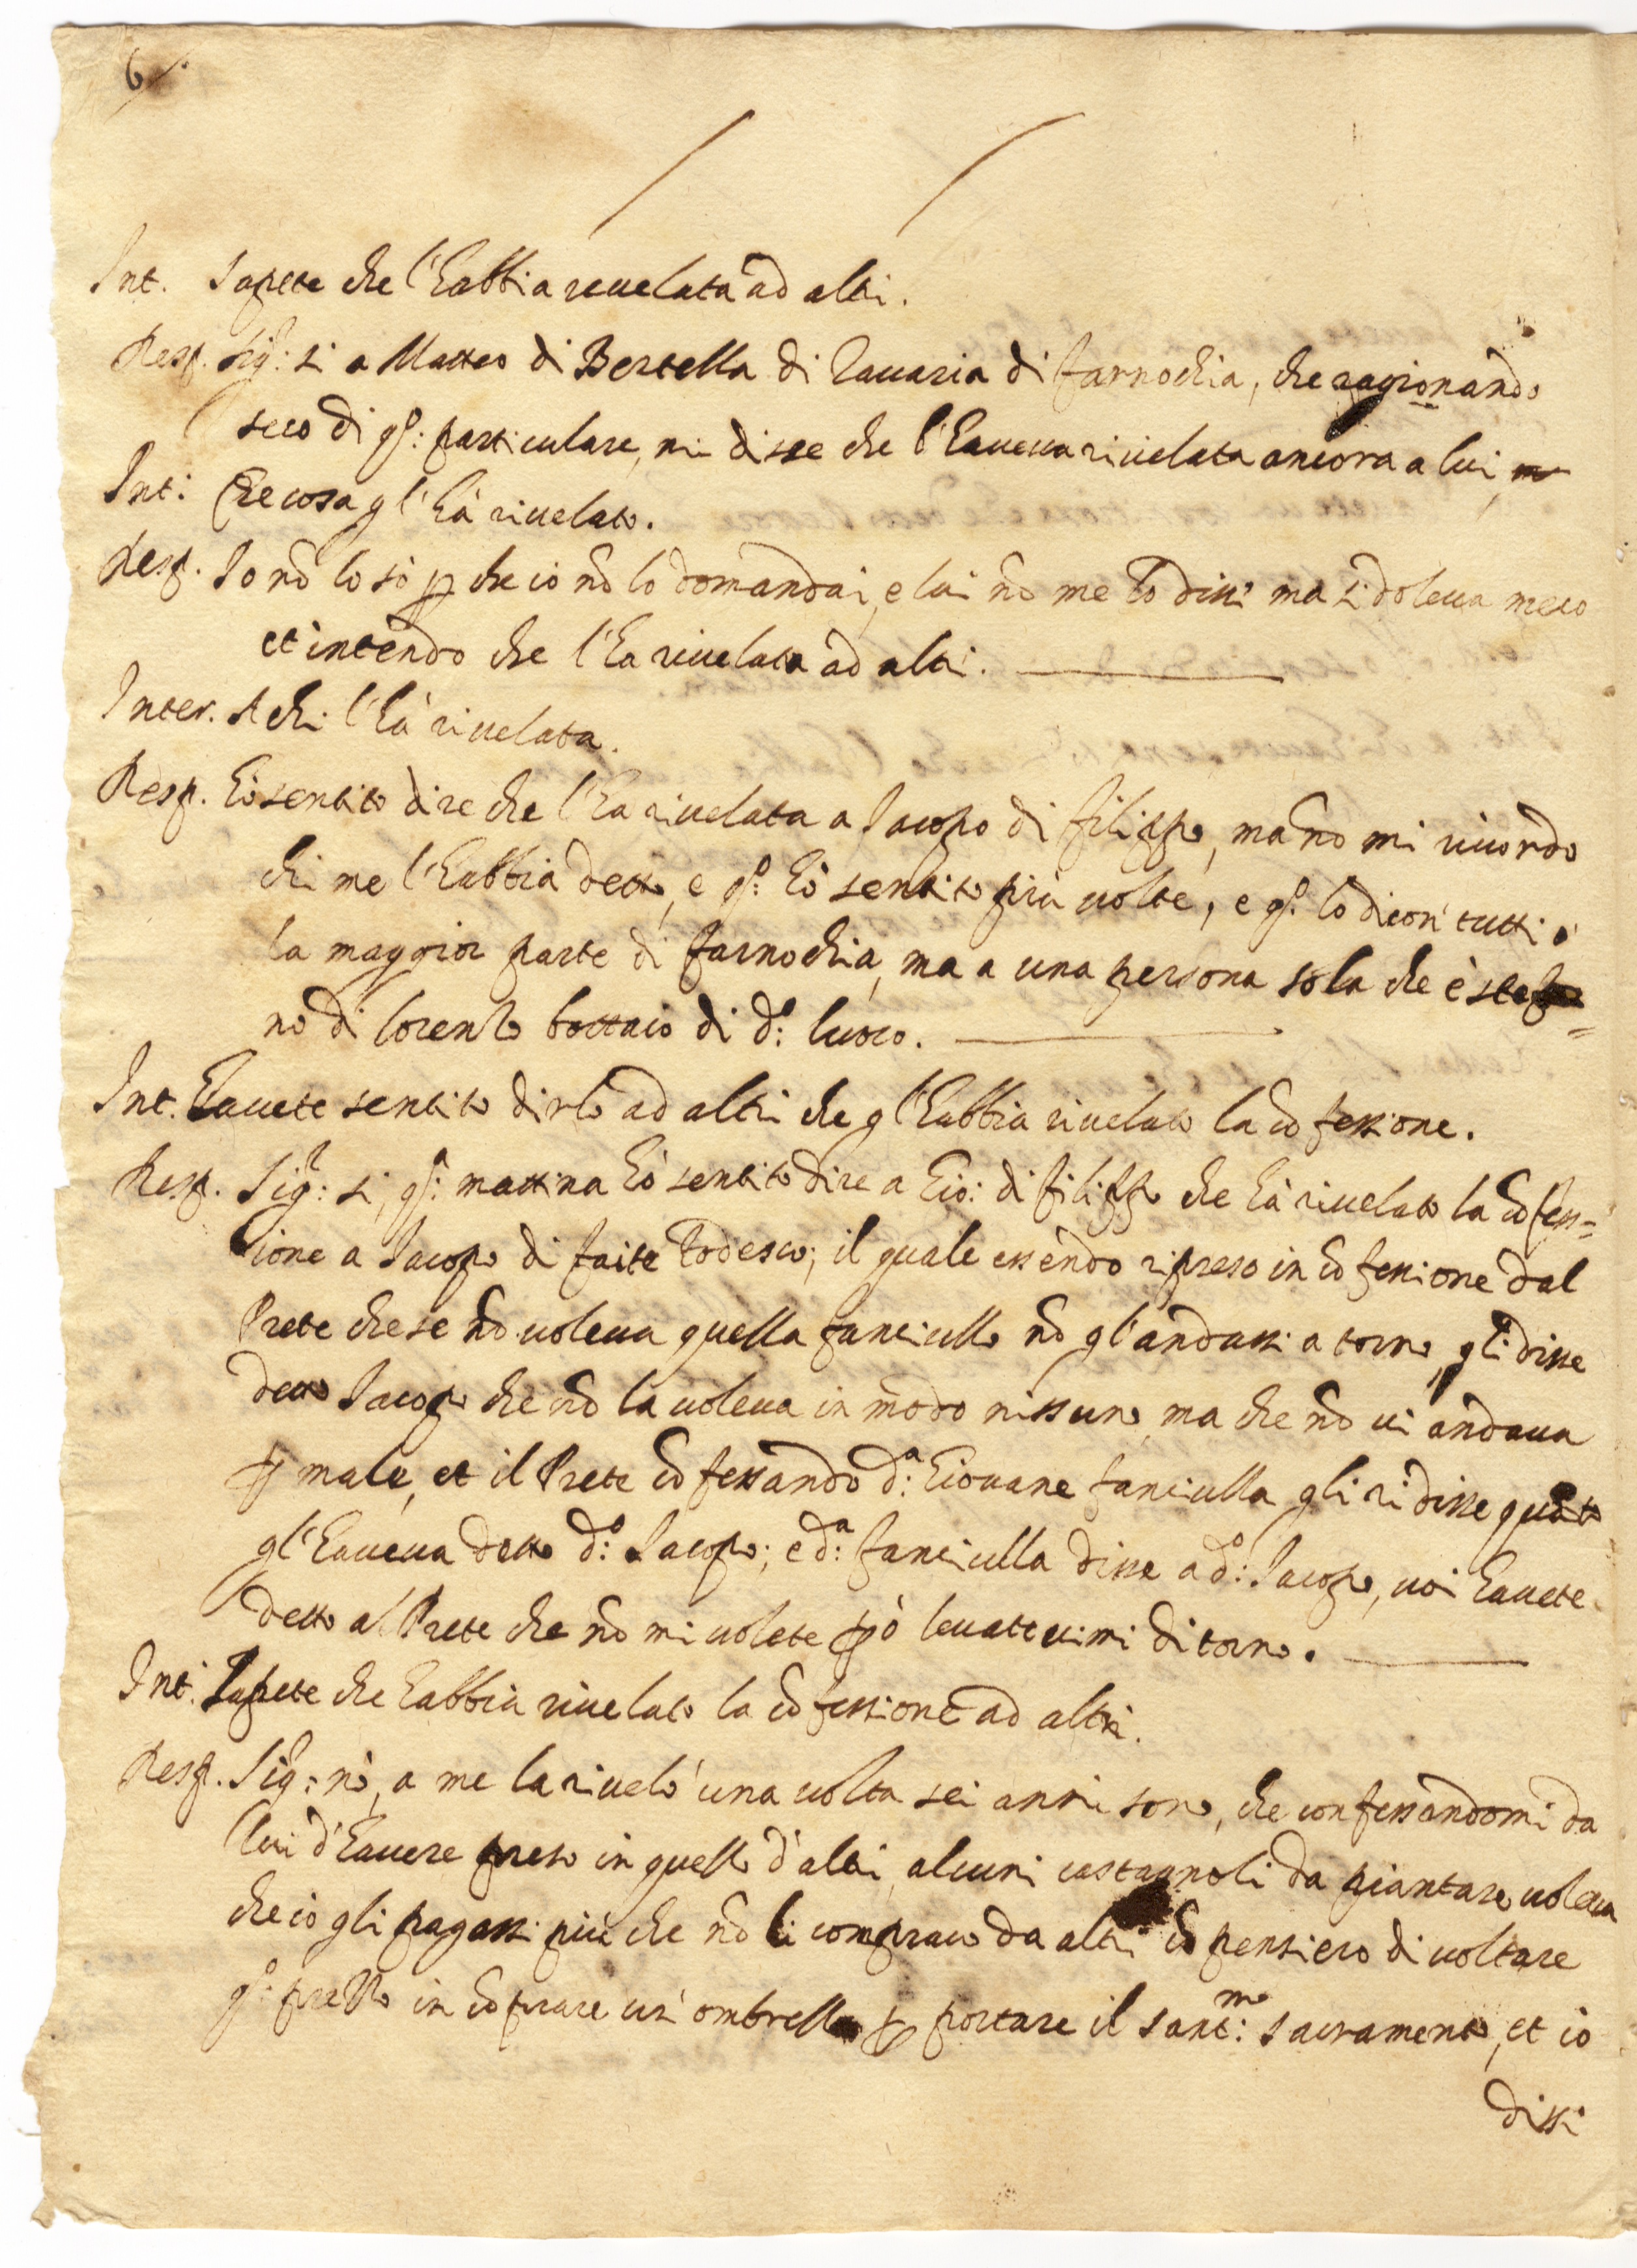 6
Int. Sapete che l'habbia revelata ad altri.
Resp. Sig.r: si a Matteo di Bertella di Zacaria di farnochia, che ragionando
seco di q.o: particulare, mi disse che l'haueua riuelata ancora a lui,
Int: Che cosa gl'hà riuelato.
Resp. Io nō lo sò p che io nō lo domandai, e lui nō me lo dissi ma si doleua meco
et intendo che l'ha riuelata ad altri.
Inter. A chi l'hà riuelata.
Resp. hò sentito dire che l'ha riuelata a Jacopo di filippo, ma nō mi ricordo
chi me l'habbia detto, e q.o: hò sentito più uolte, e q.o: lo dicon' tutti ò
la maggior parte di farnochia, ma a una persona sola che è Stefa=
no di lorenzo bottaio di d.o: luoco.
Int. hauete sentito dirlo ad altri che gl'habbia riuelato la cōfessione.
Resp. Sig.r: si, q.a: mattina hò sentito dire a Gio: di filippo che hà riuelato la cōfess=
sione a Jacopo di faite Todesco; il quale essendo ripreso in cōfessione dal
Prete che se nō uoleua quella fanciulla nō gl'andassi a torno, gli disse
detto Jacopo che nō la uoleua in modo nissuno, ma che nō ui andaua
p male, et il Prete cōfessando d.a: Giouane fanciulla gli ridisse quāto
gl'haueua detto d.o: Jacopo; e d.a: fanciulla disse a d.o: Jacopo, uoi hauete
detto al Prete che nō mi uolete pò leuateuimi di torno.
Int. Sapete che habbia riuelato la cōfessione ad altri.
Resp. Sig.r: nò, a me la riuelò una uolta sei anni sono, che confessandomi da
lui d'hauere preso in quello d'altri alcuni castagnoli da piantare uoleua
che io gli pagassi più che nō li comprauo da altri cō pensiero di uoltare
q.o: prezzo in cōprare un' ombrello p portare il sant:mo sacramento, et io
dissi